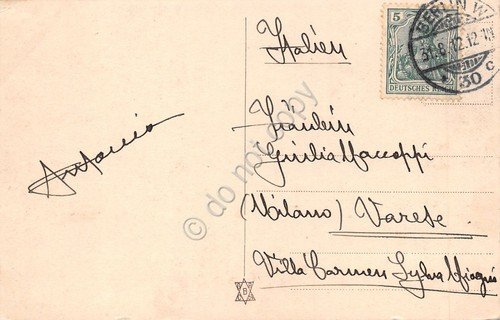 Antonio
Italien
5
DEUTSCHES REICH
BERLIN W.
31.8.12.12-1N
30 c
Fräulein
Giulia Maccoppi
(Milano) Varese
Villa Carmen Sylva
© do not copy
B